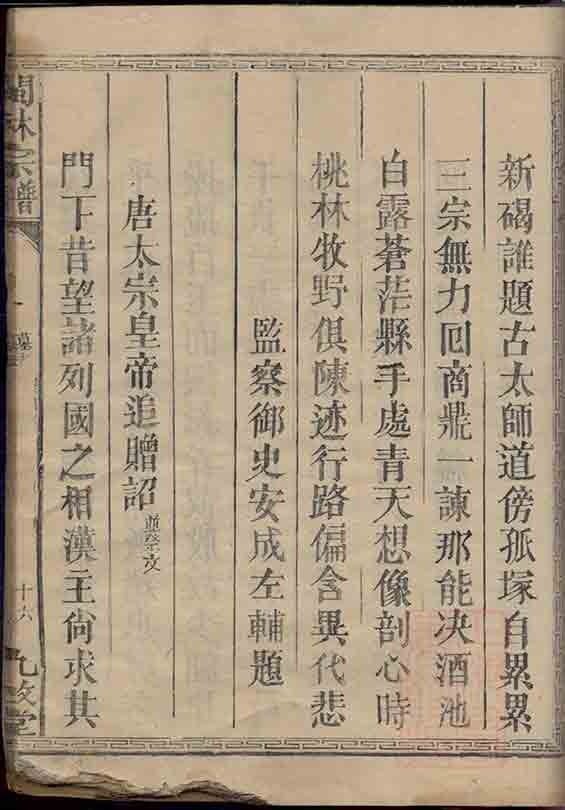 新碣誰題古太師道傍孤塚自累累
三宗無力回商鼎一諫那能决酒池
白露蒼茫縣手處青天想像剖心時
桃林牧野俱陳迹行路偏含異代悲
監察御史安成左輔題
唐太宗皇帝追贈詔並祭文
門下昔望諸列國之相漢主尙求其
林宗譜
十六